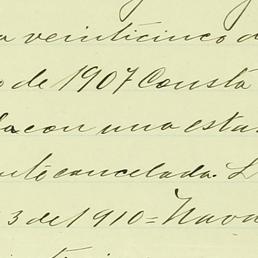 a veinticinco d
o de 1907 Consta
la con una esta
ente cancelada. L
3 de 1910 = Nava